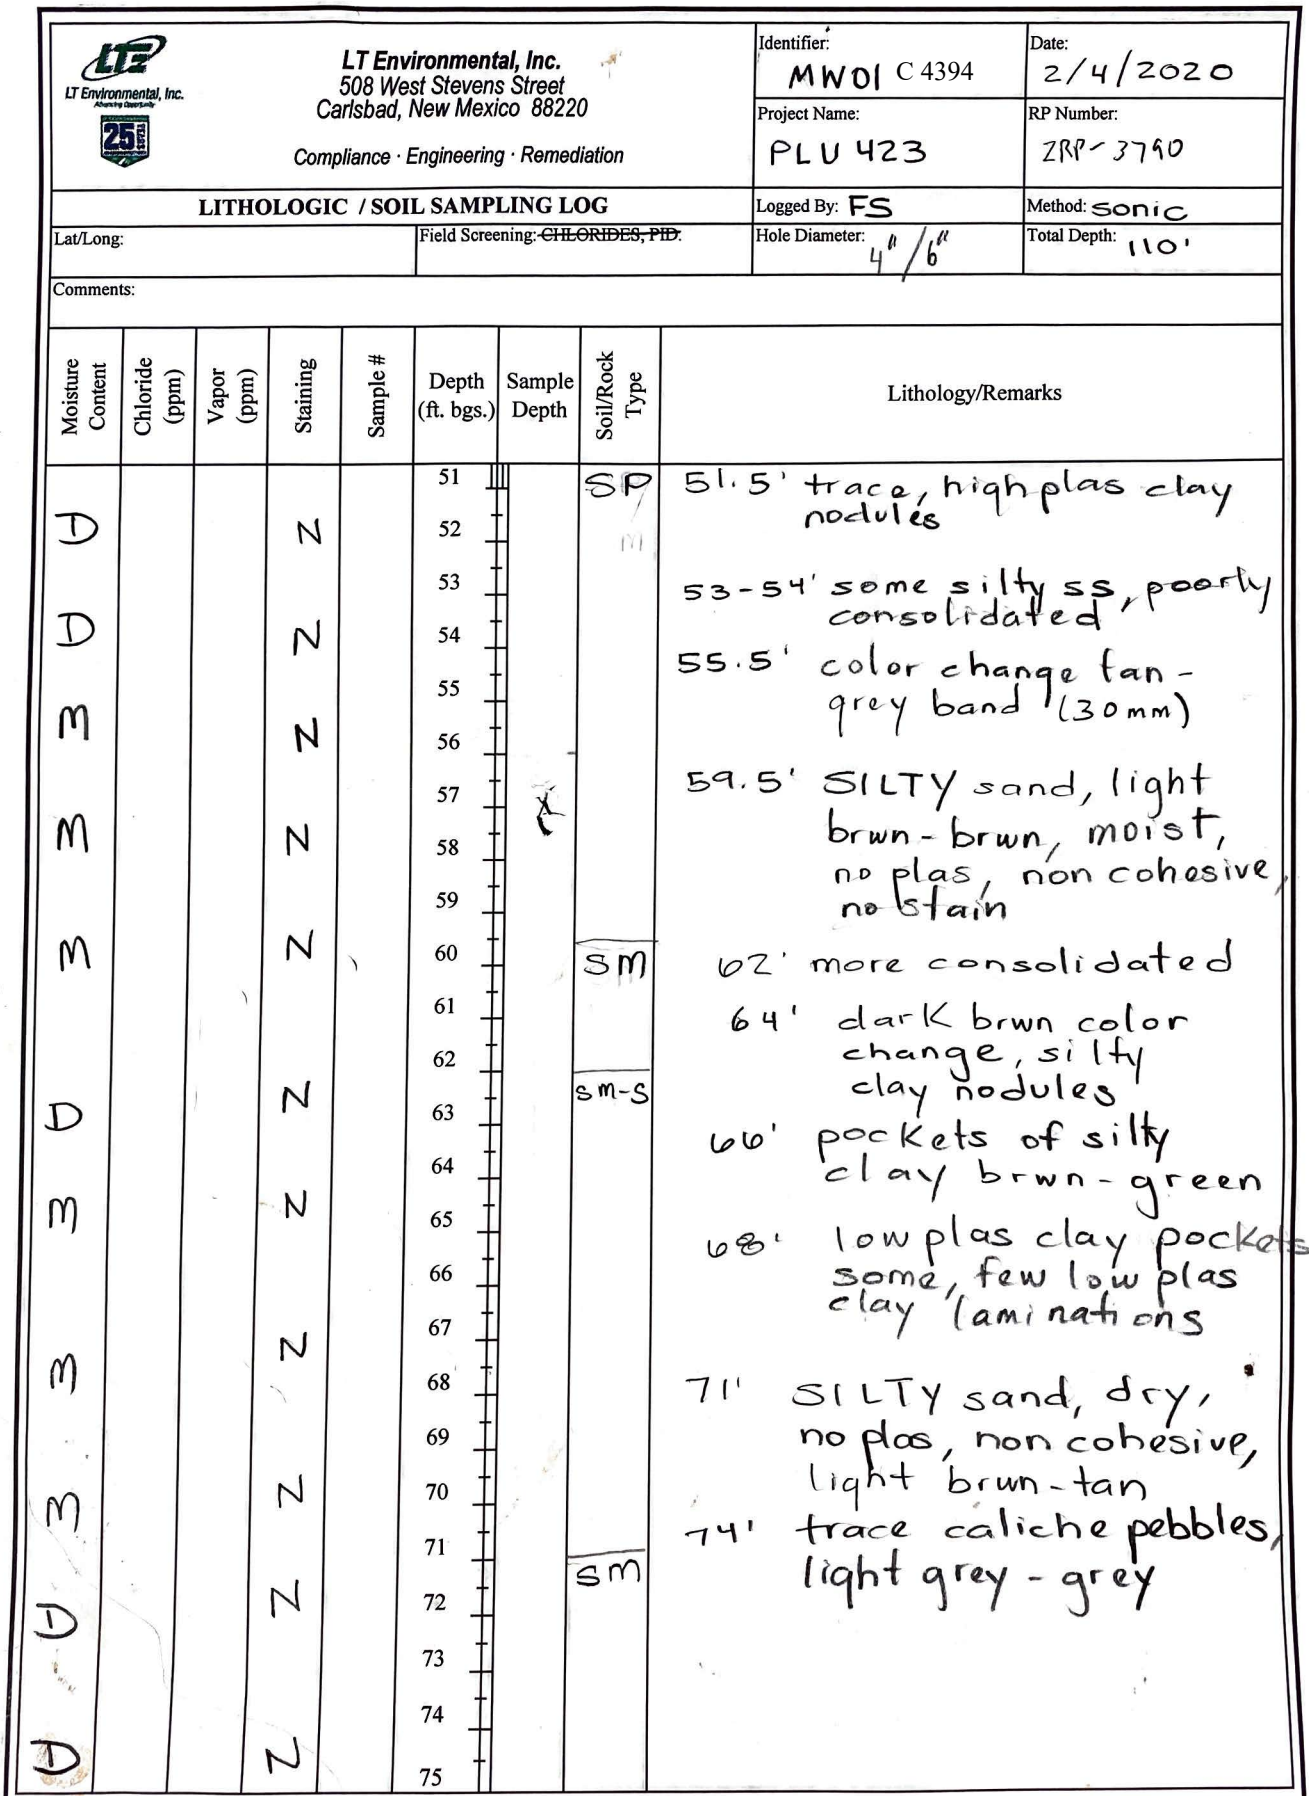 LTE
LT Environmental, Inc.
Advancing Opportunity
25
YEARS
LT Environmental, Inc.
508 West Stevens Street
Carlsbad, New Mexico 88220
Compliance · Engineering · Remediation
Identifier:
MW01 C 4394
Date:
2/4/2020
Project Name:
PLU 423
RP Number:
2RP-3790
LITHOLOGIC / SOIL SAMPLING LOG
Logged By: FS
Method: sonic
Lat/Long:
Field Screening: CHLORIDES, PID.
Hole Diameter: 4"/6"
Total Depth: 110'
Comments:
Moisture Content
Chloride (ppm)
Vapor (ppm)
Staining
Sample #
Depth (ft. bgs.)
Sample Depth
Soil/Rock Type
Lithology/Remarks
51 SP 51.5' trace, high plas clay
nodules
D N 52 m
53 53-54' some silty ss, poorly
consolidated
D N 54
55.5' color change tan-
55
grey band (30mm)
M N 56
57 59.5' SILTY sand, light
M N 58 brwn-brwn, moist,
no plas, non cohesive,
59 no stain
M N 60 SM 62' more consolidated
61 64' dark brwn color
62 change, silty
D N 63 SM-S clay nodules
64 66' pockets of silty
clay brwn-green
M N 65 68' low plas clay pockets
66 some, few low plas
67 clay laminations
M N 68 71' SILTY sand, dry,
69 no plas, non cohesive,
M N 70 light brwn-tan
71 74' trace caliche pebbles,
D N 72 SM light grey-grey
73
74
D N 75